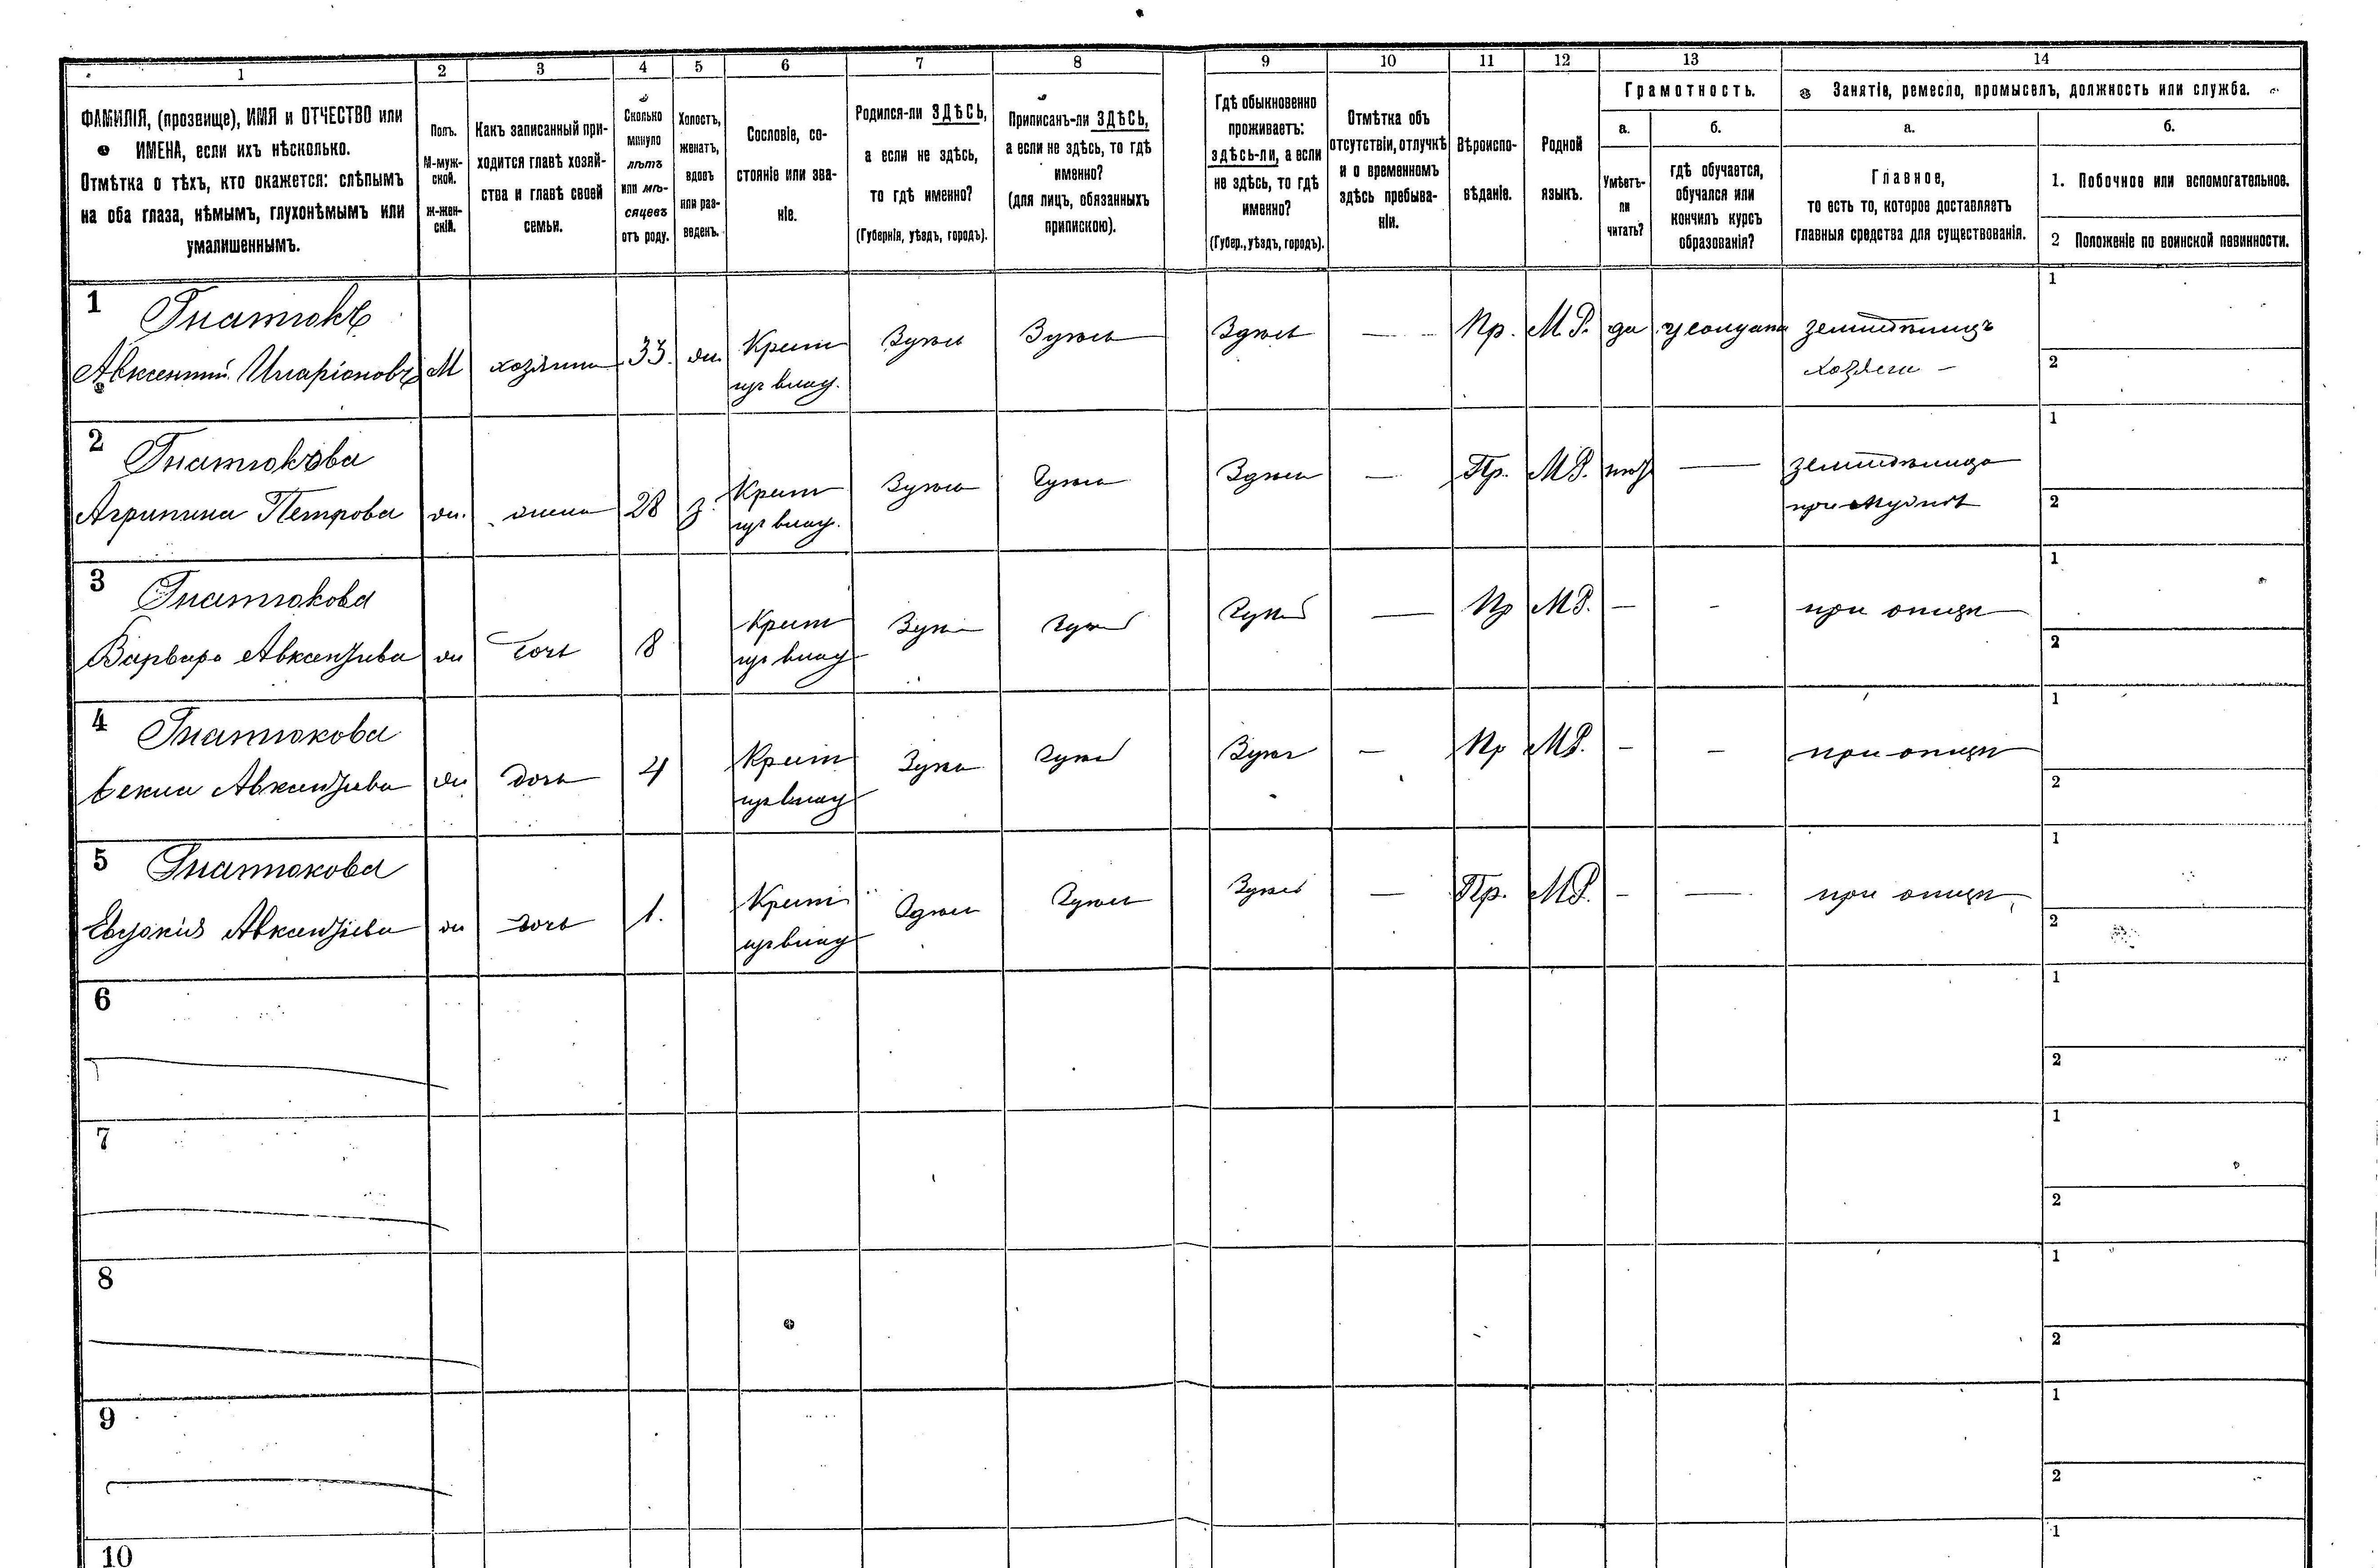 1 2 3 4 5 6 7 8 9 10 11 12 13 14
ФАМИЛІЯ, (прозвище), ИМЯ и ОТЧЕСТВО или
ИМЕНА, если ихъ нѣсколько.
Отмѣтка о тѣхъ, кто окажется: слѣпымъ
на оба глаза, нѣмымъ, глухонѣмымъ или
умалишеннымъ.
Полъ.
М-муж-
ской.
ж-жен-
скій.
Какъ записанный при-
ходится главѣ хозяй-
ства и главѣ своей
семьи.
Сколько
минуло
лѣтъ
или мѣ-
сяцевъ
отъ роду.
Холостъ,
женатъ,
вдовъ
или раз-
веденъ.
Сословіе, со-
стояніе или зва-
ніе.
Родился-ли ЗДѢСЬ,
а если не здѣсь,
то гдѣ именно?
(Губернія, уѣздъ, городъ).
Приписанъ-ли ЗДѢСЬ,
а если не здѣсь, то гдѣ
именно?
(для лицъ, обязанныхъ
припискою).
Гдѣ обыкновенно
проживаетъ:
здѣсь-ли, а если
не здѣсь, то гдѣ
именно?
(Губер., уѣздъ, городъ).
Отмѣтка объ
отсутствіи, отлучкѣ
и о временномъ
здѣсь пребыва-
ніи.
Вѣроиспо-
вѣданіе.
Родной
языкъ.
Грамотность.
а.
Умѣетъ-
ли
читать?
б.
гдѣ обучается,
обучался или
кончилъ курсъ
образованія?
Занятіе, ремесло, промыселъ, должность или служба.
а.
Главное,
то есть то, которое доставляетъ
главныя средства для существованія.
б.
1. Побочное или вспомогательное.
2 Положеніе по воинской повинности.
1 Гнатюкъ
Авксентий Иларіоновъ М хозяинъ 33. ж. Крест Здѣсь Здѣсь Здѣсь — Пр. М.Р. да земледѣлецъ 1
изъ влад. хозяинъ — 2
2 Гнатюкова
Агрипина Петрова ж. жена 28 з. Крест Здѣсь Здѣсь Здѣсь — Пр. М.Р. — 1
изъ влад. при мужѣ 2
3 Гнатюкова
Варвара Авксентьева ж дочь 8 Крест Здѣсь Здѣсь Здѣсь — Пр М.Р. — — при отцѣ 1
изъ влад 2
4 Гнатюкова
Ѳекла Авксентьева ж дочь 4 Крест Здѣсь Здѣсь Здѣсь — Пр М.Р. — — при отцѣ 1
изъ влад 2
5 Гнатюкова
Евдокія Авксентьева ж дочь 1. Крест Здѣсь Здѣсь Здѣсь — Пр. М.Р. — — при отцѣ 1
изъ влад 2
6 1
2
7 1
2
8 1
2
9 1
2
10 1